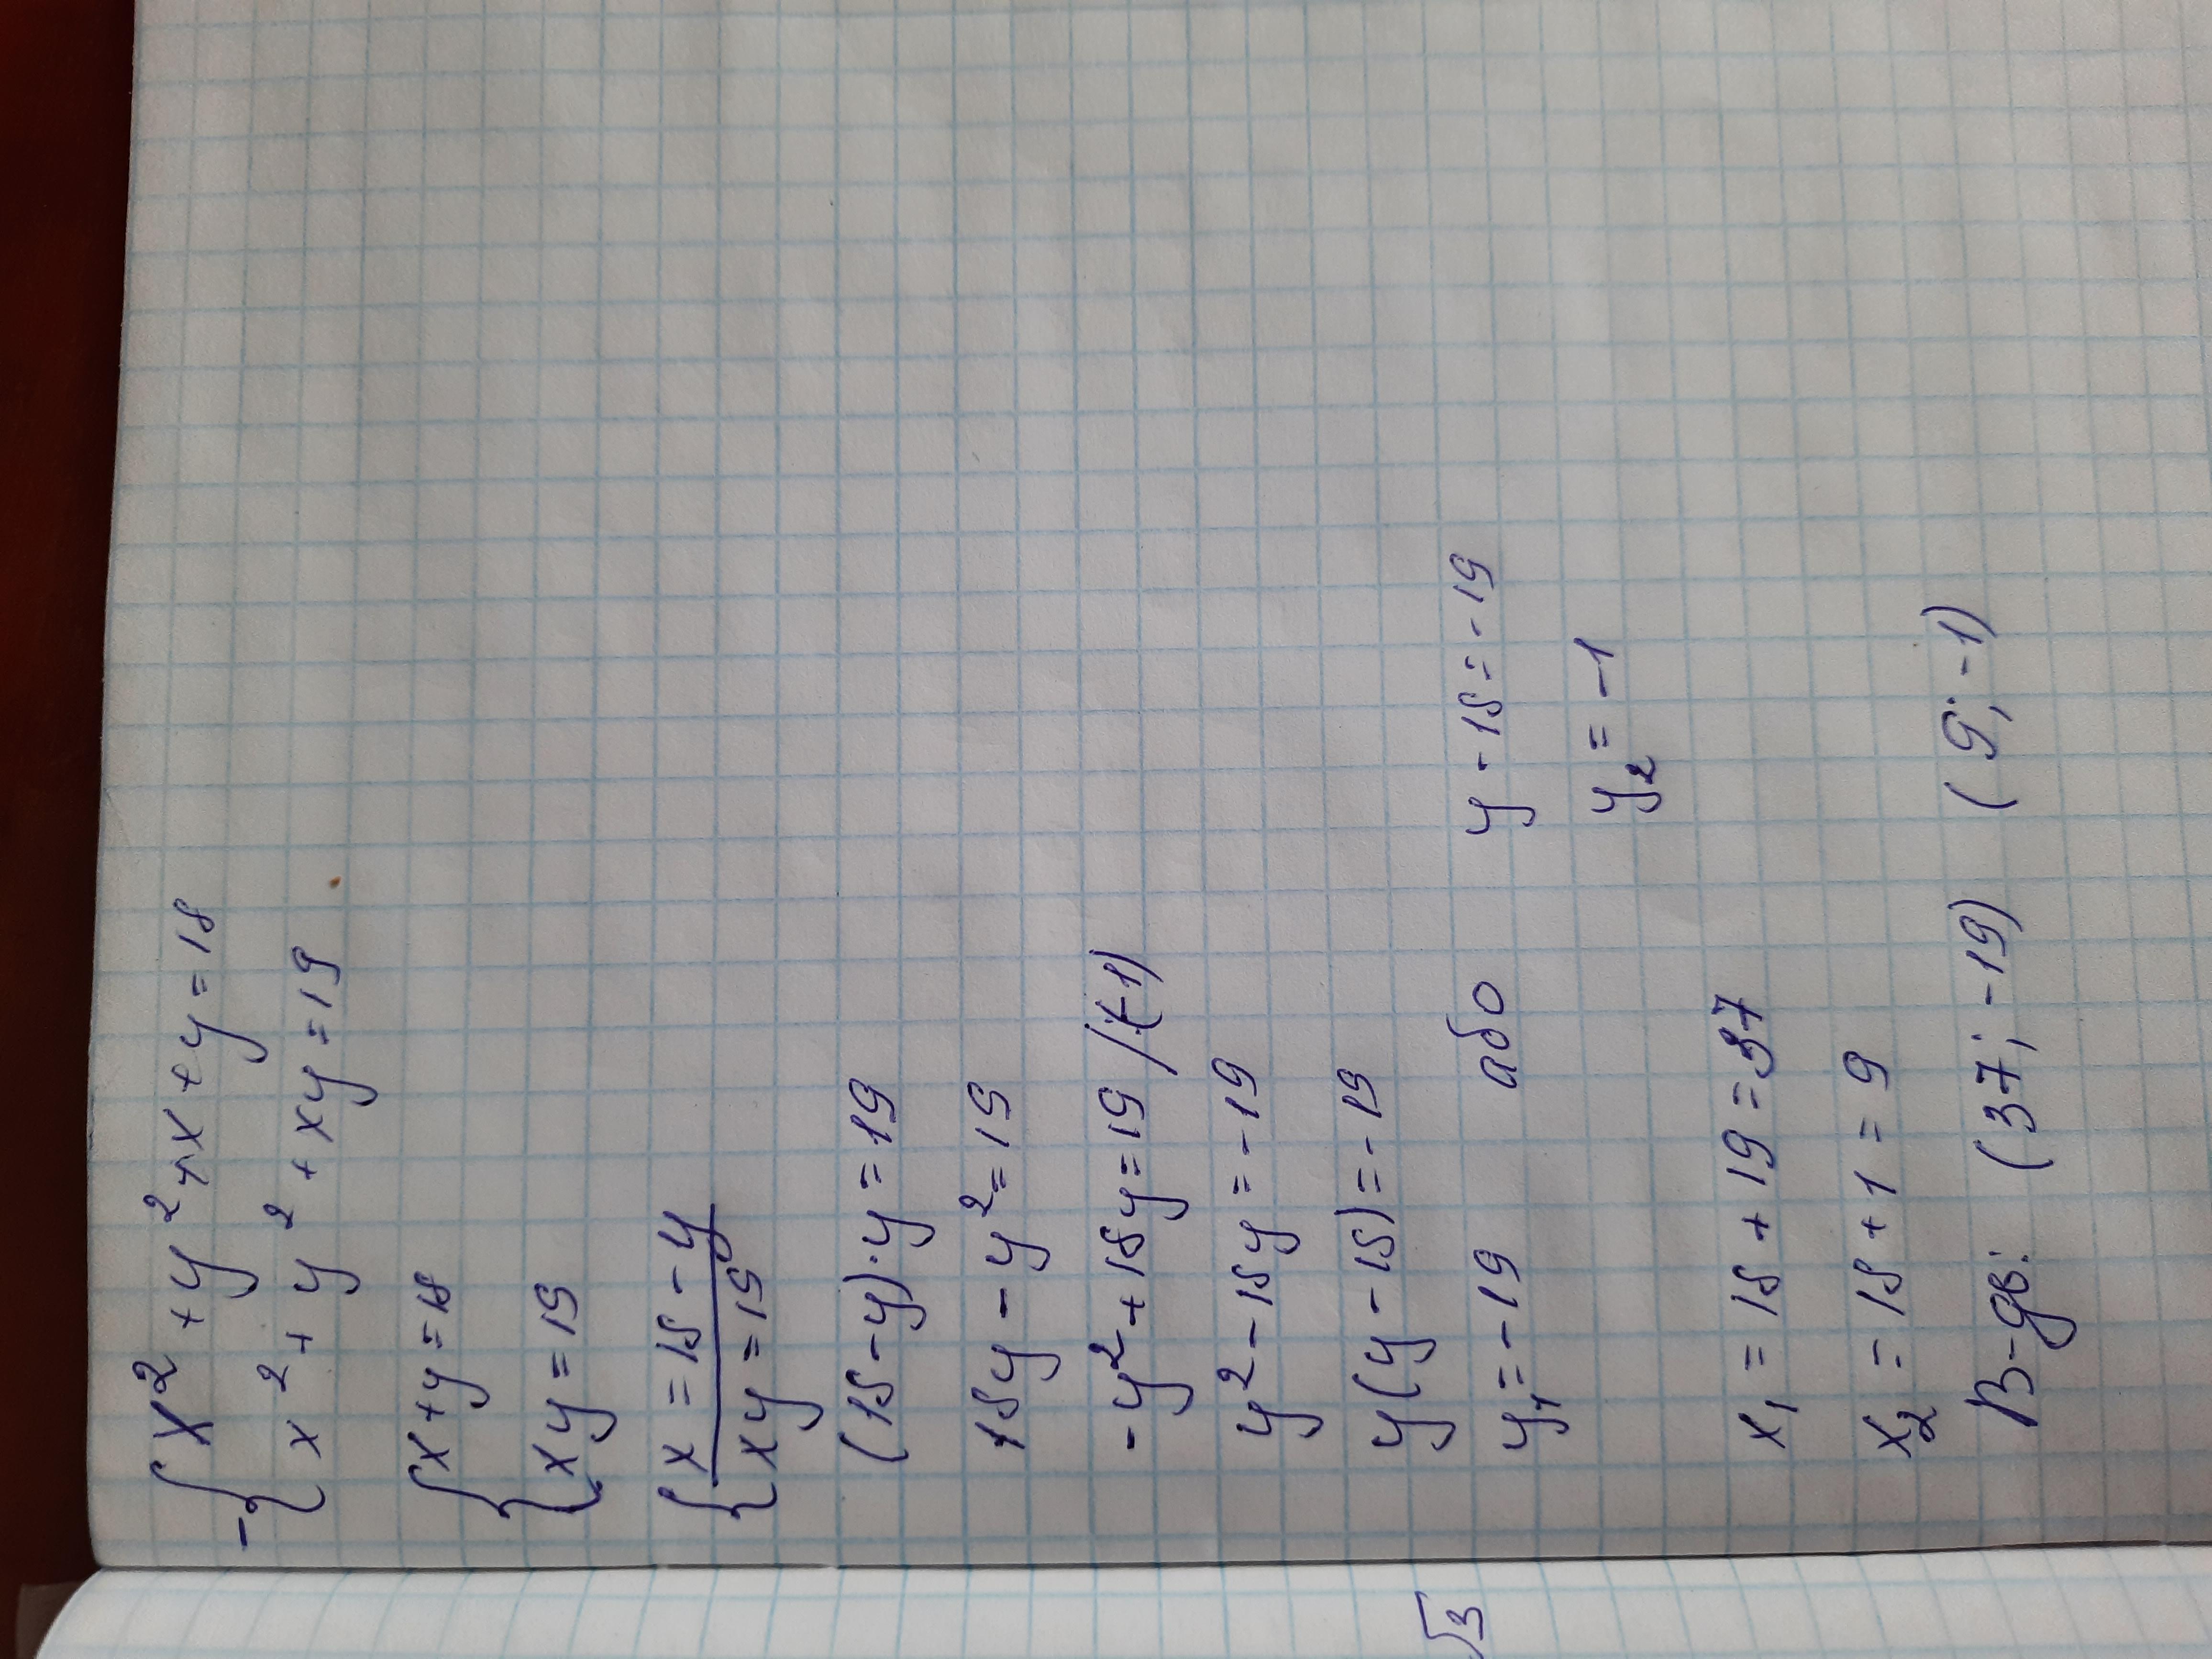 - { x² + y² + x + y = 18
x² + y² + xy = 19
{ x + y = 18
xy = 19
{ x = 18 - y
xy = 19
(18 - y) · y = 19
18y - y² = 19
-y² + 18y = 19 /(-1)
y² - 18y = -19
y(y - 18) = -19
y₁ = -19 або y - 18 = -19
y₂ = -1
x₁ = 18 + 19 = 37
x₂ = 18 + 1 = 9
В-дь: (37; -19) (9; -1)
√3